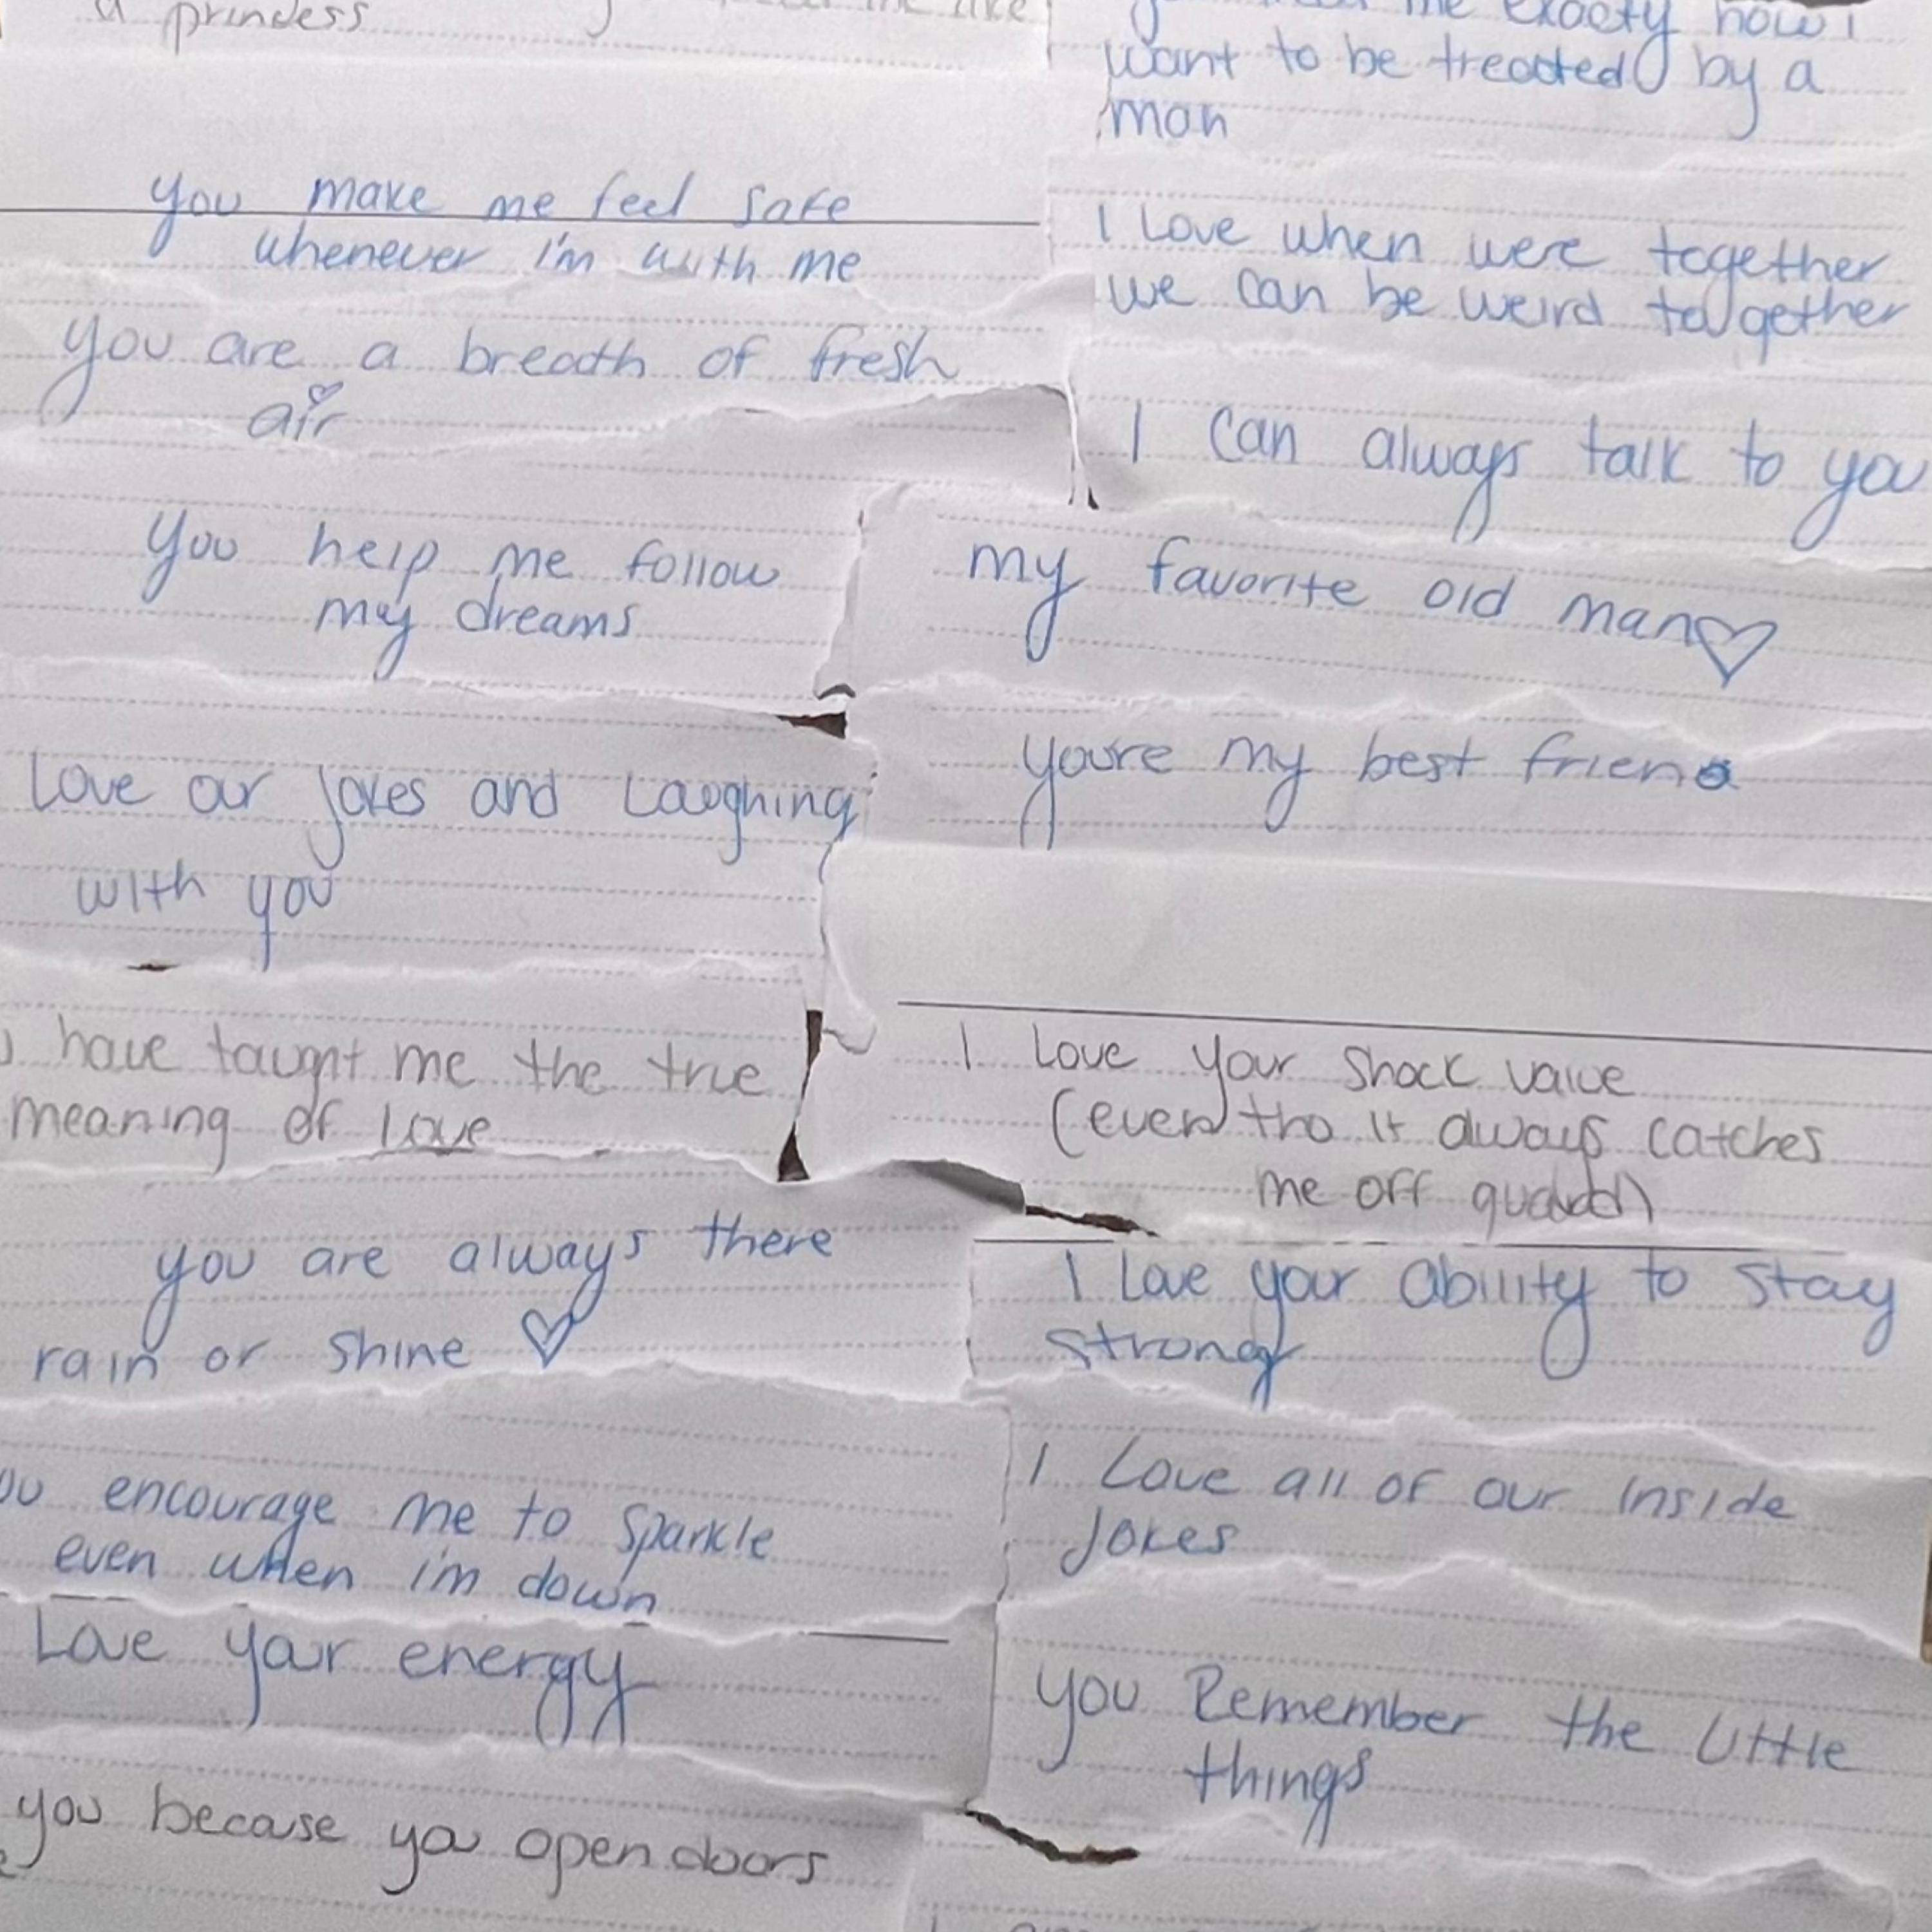 a princess
you make me feel safe
whenever i'm with me
you are a breath of fresh
air
you help me follow
my dreams
Love our jokes and Laughing
with you
have taught me the true
meaning of love
you are always there
rain or shine ♡
ou encourage me to sparkle
even when i'm down
Love your energy
you because you open doors
me exactly how i
want to be treated by a
man
I Love when were together
we can be weird together
I can always talk to you
my favorite old man♡
you're my best friend
I Love your shock value
(even tho it always catches
me off guard)
I Love your ability to stay
strong
I Love all of our inside
jokes
you Remember the little
things